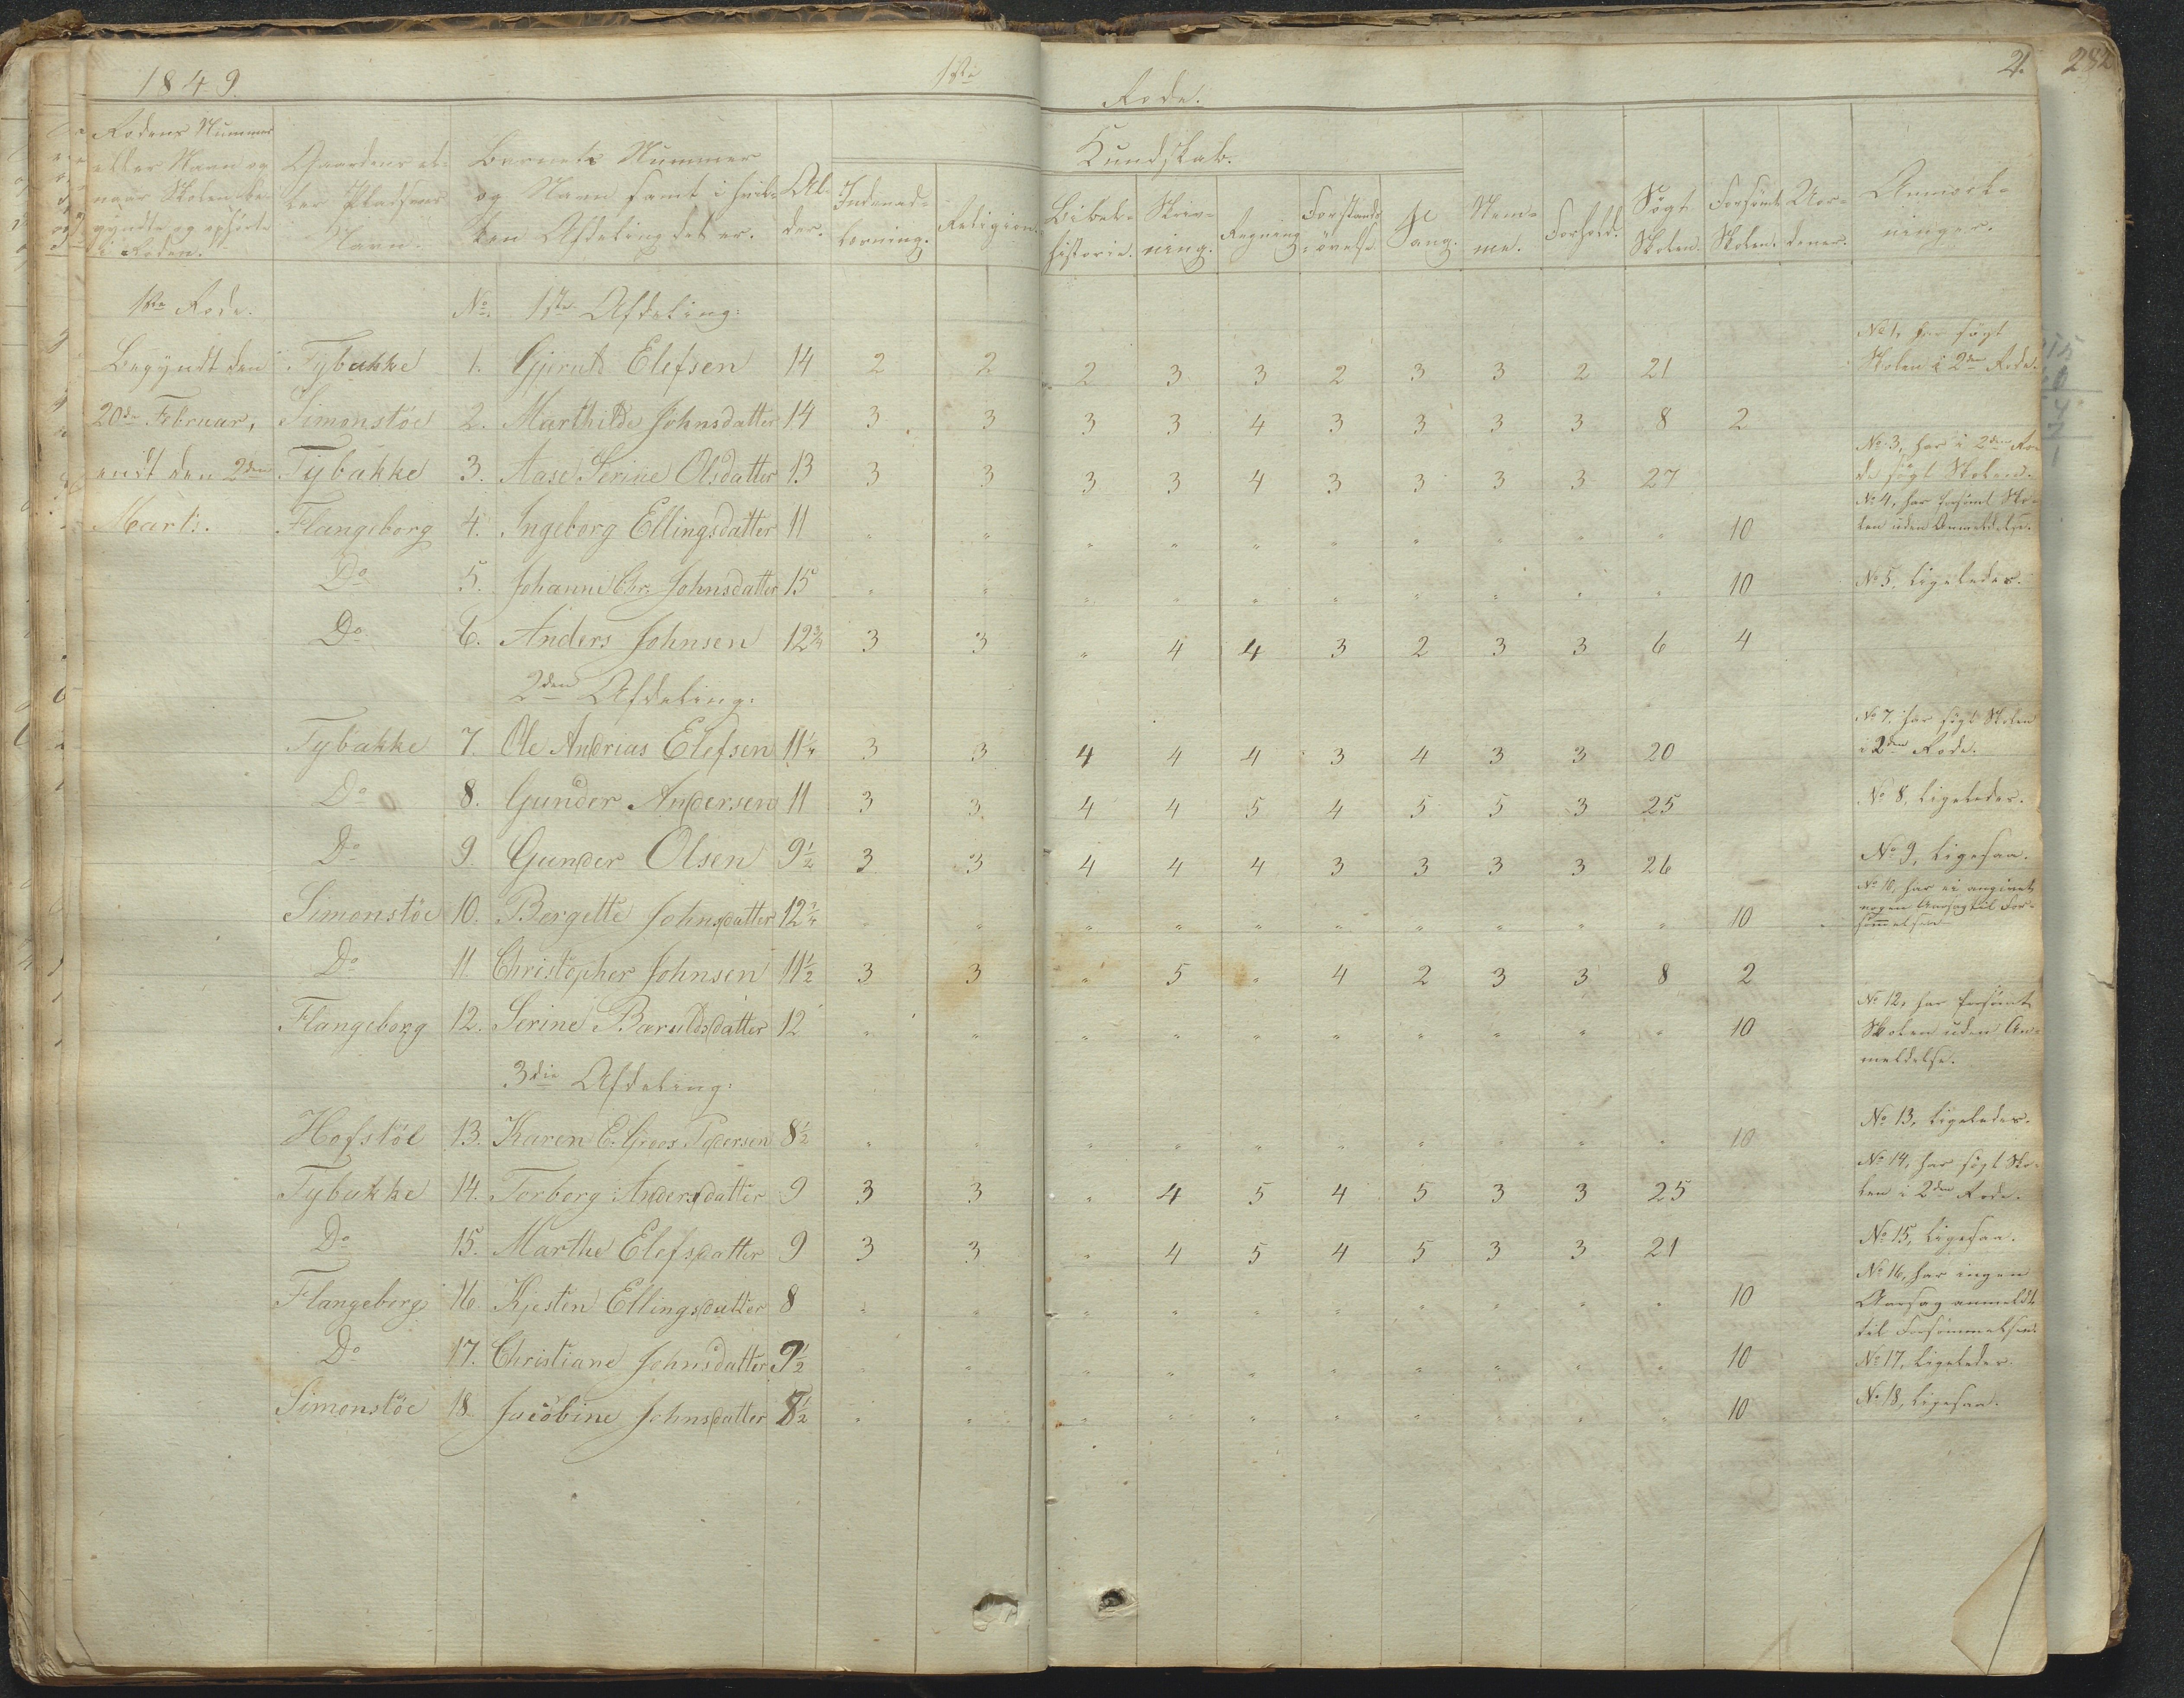 1849. 1ste Rode. 2. 282
Rodens Nummer eller Navn og naar Skolen begyndte og ophörte i Roden.
Gaardens eller Pladsens Navn.
Barnets Nummer og Navn samt i hvilken Afdeling det er.
Alder.
Kundskab.
Indenadlæsning.
Religion.
Bibelhistorie.
Skrivning.
Regning
Forstandsövelse
Sang.
Nemme.
Forhold.
Sögt Skolen.
Forsömt Skolen.
Anmærkninger.
1ste Rode. No. 1ste Afdeling:
Begyndt den Tybakke 1. Gjerulf Elefsen 14 2 2 2 3 3 2 3 3 2 21 No 1, har sögt Skolen i 2den Rode.
20de Februar, Simonstöe 2. Marthilde Johnsdatter 14 3 3 3 3 4 3 3 3 3 8 2
endt den 2den Tybakke 3. Aase Serine Olsdatter 13 3 3 3 3 4 3 3 3 3 27 No 3, har i 2den Rode sögt Skolen.
Marts. Flangeborg 4. Ingeborg Ellingsdatter 11 " " " " " " " " " " 10 No 4, har forsömt Skolen uden Anmeldelse.
Do 5. Johanne Chr. Johnsdatter 15 " " " " " " " " " " 10 No 5, ligeledes.
Do 6. Anders Johnsen 12 3/4 3 3 " 4 4 3 2 3 3 6 4
2den Afdeling:
Tybakke 7. Ole Andrias Elefsen 11 1/4 3 3 4 4 4 3 4 3 3 20 No 7, har sögt Skolen i 2den Rode.
Do 8. Gunder Andersen 11 3 3 4 4 5 4 5 5 3 25 No 8, ligeledes.
Do 9. Gunder Olsen 9 1/2 3 3 4 4 4 3 3 3 3 26 No 9, ligesaa.
Simonstöe 10. Bergette Johnsdatter 12 3/4 " " " " " " " " " " 10 No 10, har ei angivet nogen Aarsag til Forsömmelsen
Do 11. Christopher Johnsen 11 1/2 3 3 " 5 " 4 2 3 3 8 2
Flangeborg 12. Serine Baruldsdatter 12 " " " " " " " " " " 10 No 12, har forsömt Skolen uden Anmeldelse.
3die Afdeling:
Hofstöl 13. Karen E. Groos Pedersen 8 1/2 " " " " " " " " " " 10 No 13, ligeledes.
Tybakke 14. Torborg Andersdatter 9 3 3 " 4 5 4 5 3 3 25 No 14, har sögt Skolen i 2den Rode.
Do 15. Marthe Elefsdatter 9 3 3 " 4 5 4 5 3 3 21 No 15, ligesaa.
Flangeborg 16. Kjesten Ellingsdatter 8 " " " " " " " " " " 10 No 16, har ingen Aarsag anmeldt til Forsömmelsen
Do 17. Christiane Johnsdatter 9 1/2 " " " " " " " " " " 10 No 17, ligeledes.
Simonstöe 18. Jacobine Johnsdatter 8 1/2 " " " " " " " " " " 10 No 18, ligesaa.